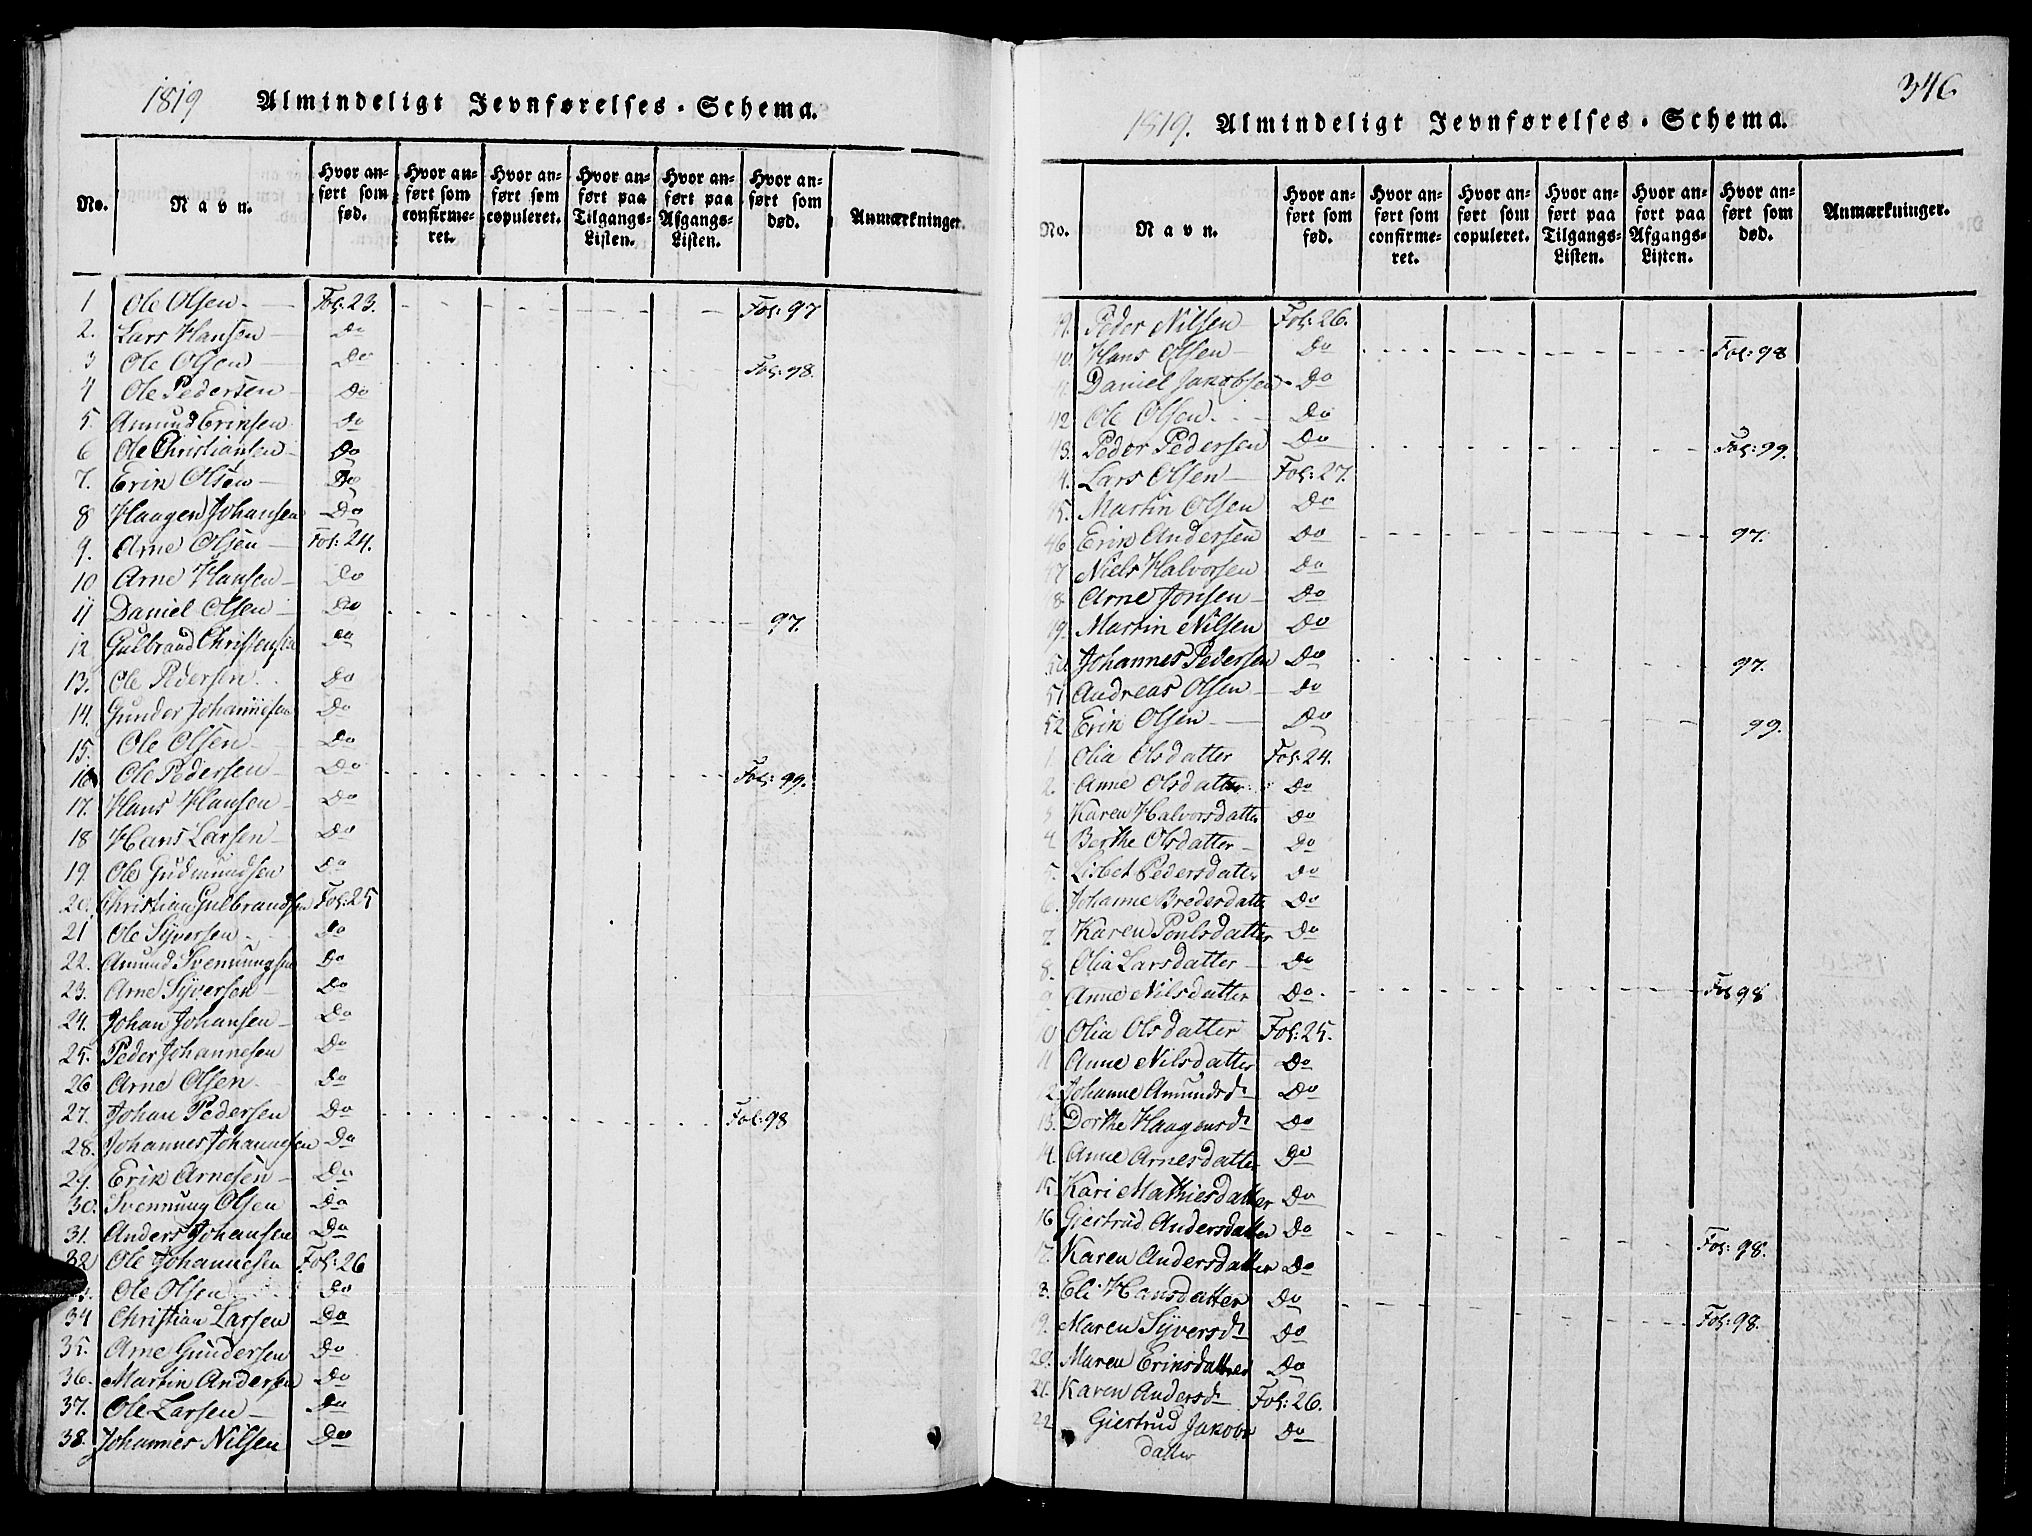 1819 Almindeligt Jevnførelses-Schema.
No. Navn. Hvor anført som fød. Hvor anført som confirmeret. Hvor anført som copuleret. Hvor anført paa Tilgangs-Listen. Hvor anført paa Afgangs-Listen. Hvor anført som død. Anmærkninger.
1 Ole Olsen Fol: 23. Fol: 97
2. Lars Hansen Do
3 Ole Olsen Do Fol: 98.
4 Ole Pedersen Do
5. Amund Eriksen Do
6 Ole Christiansen Do
7. Erik Olsen Do
8 Haagen Johansen Do
9. Arne Olsen Fol: 24.
10 Arne Hansen Do
11 Daniel Olsen Do 97.
12 Gulbrand Christensen Do
13. Ole Pedersen Do
14. Gunder Johannesen Do
15. Ole Olsen Do
16 Ole Pedersen Do Fol: 99.
17. Hans Hansen Do
18 Hans Larsen Do
19. Ole Gudmundsen Do
20. Christian Gulbrandsen Fol: 25
21 Ole Syversen Do
22. Amund Svennungsen Do
23. Arne Syversen Do
24. Johan Johansen Do
25. Peder Johannesen Do
26 Arne Olsen Do
27. Johan Pedersen Do Fol: 98
28. Johannes Johannesen Do
29. Erik Arnesen Do
30. Svennung Olsen Do
31. Anders Johansen Do
32 Ole Johannesen Fol: 26
3. Ole Olsen Do
34 Christian Larsen Do
35. Arne Gundersen Do
36. Martin Andersen Do
37. Ole Larsen Do
38. Johannes Nilsen Do
346
1819. Almindeligt Jevnførelses-Schema.
No. Navn. Hvor anført som fød. Hvor anført som confirmeret. Hvor anført som copuleret. Hvor anført paa Tilgangs-Listen. Hvor anført paa Afgangs-Listen. Hvor anført som død. Anmærkninger.
9. Peder Nilsen Fol: 26.
40. Hans Olsen Do Fol: 98
Daniel Jakobsen Do
42 Ole Olsen Do
43. Peder Pedersen Do Fol: 99.
4. Lars Olsen Fol: 27.
45. Martin Olsen Do
46 Erik Andersen Do 97.
47 Niels Halvorsen Do
8 Arne Jonsen Do
49. Martin Nilsen Do
50. Johannes Pedersen Do 97.
51 Andreas Olsen Do
52 Erik Olsen Do 99.
1. Olia Olsdatter Fol: 24.
2. Anne Olsdatter Do
3 Karen Halvorsdatter Do
4 Berthe Olsdatter Do
5. Lisbet Pedersdatter Do
6. Johanne Bredesdatter Do
7. Karen Poulsdatter Do
8. Olia Larsdatter Do
9 Anne Nilsdatter Do Fol 98
10 Olia Olsdatter Fol: 25.
11 Anne Nilsdatter Do
12 Johanne Amundsdr Do
13. Dorthe Haagensdr Do
14. Anne Arnesdatter Do
15. Kari Mathiesdatter Do
16 Giertrud Andersdatter Do Fol: 98.
17. Karen Andersdatter Do
8. Eli Hansdatter Do Fol: 98.
9. Maren Syversdr Do
20. Maren Eriksdatter Do
21. Karen Andersdr Fol: 26.
22 Giertrud Jakobs Do
datter